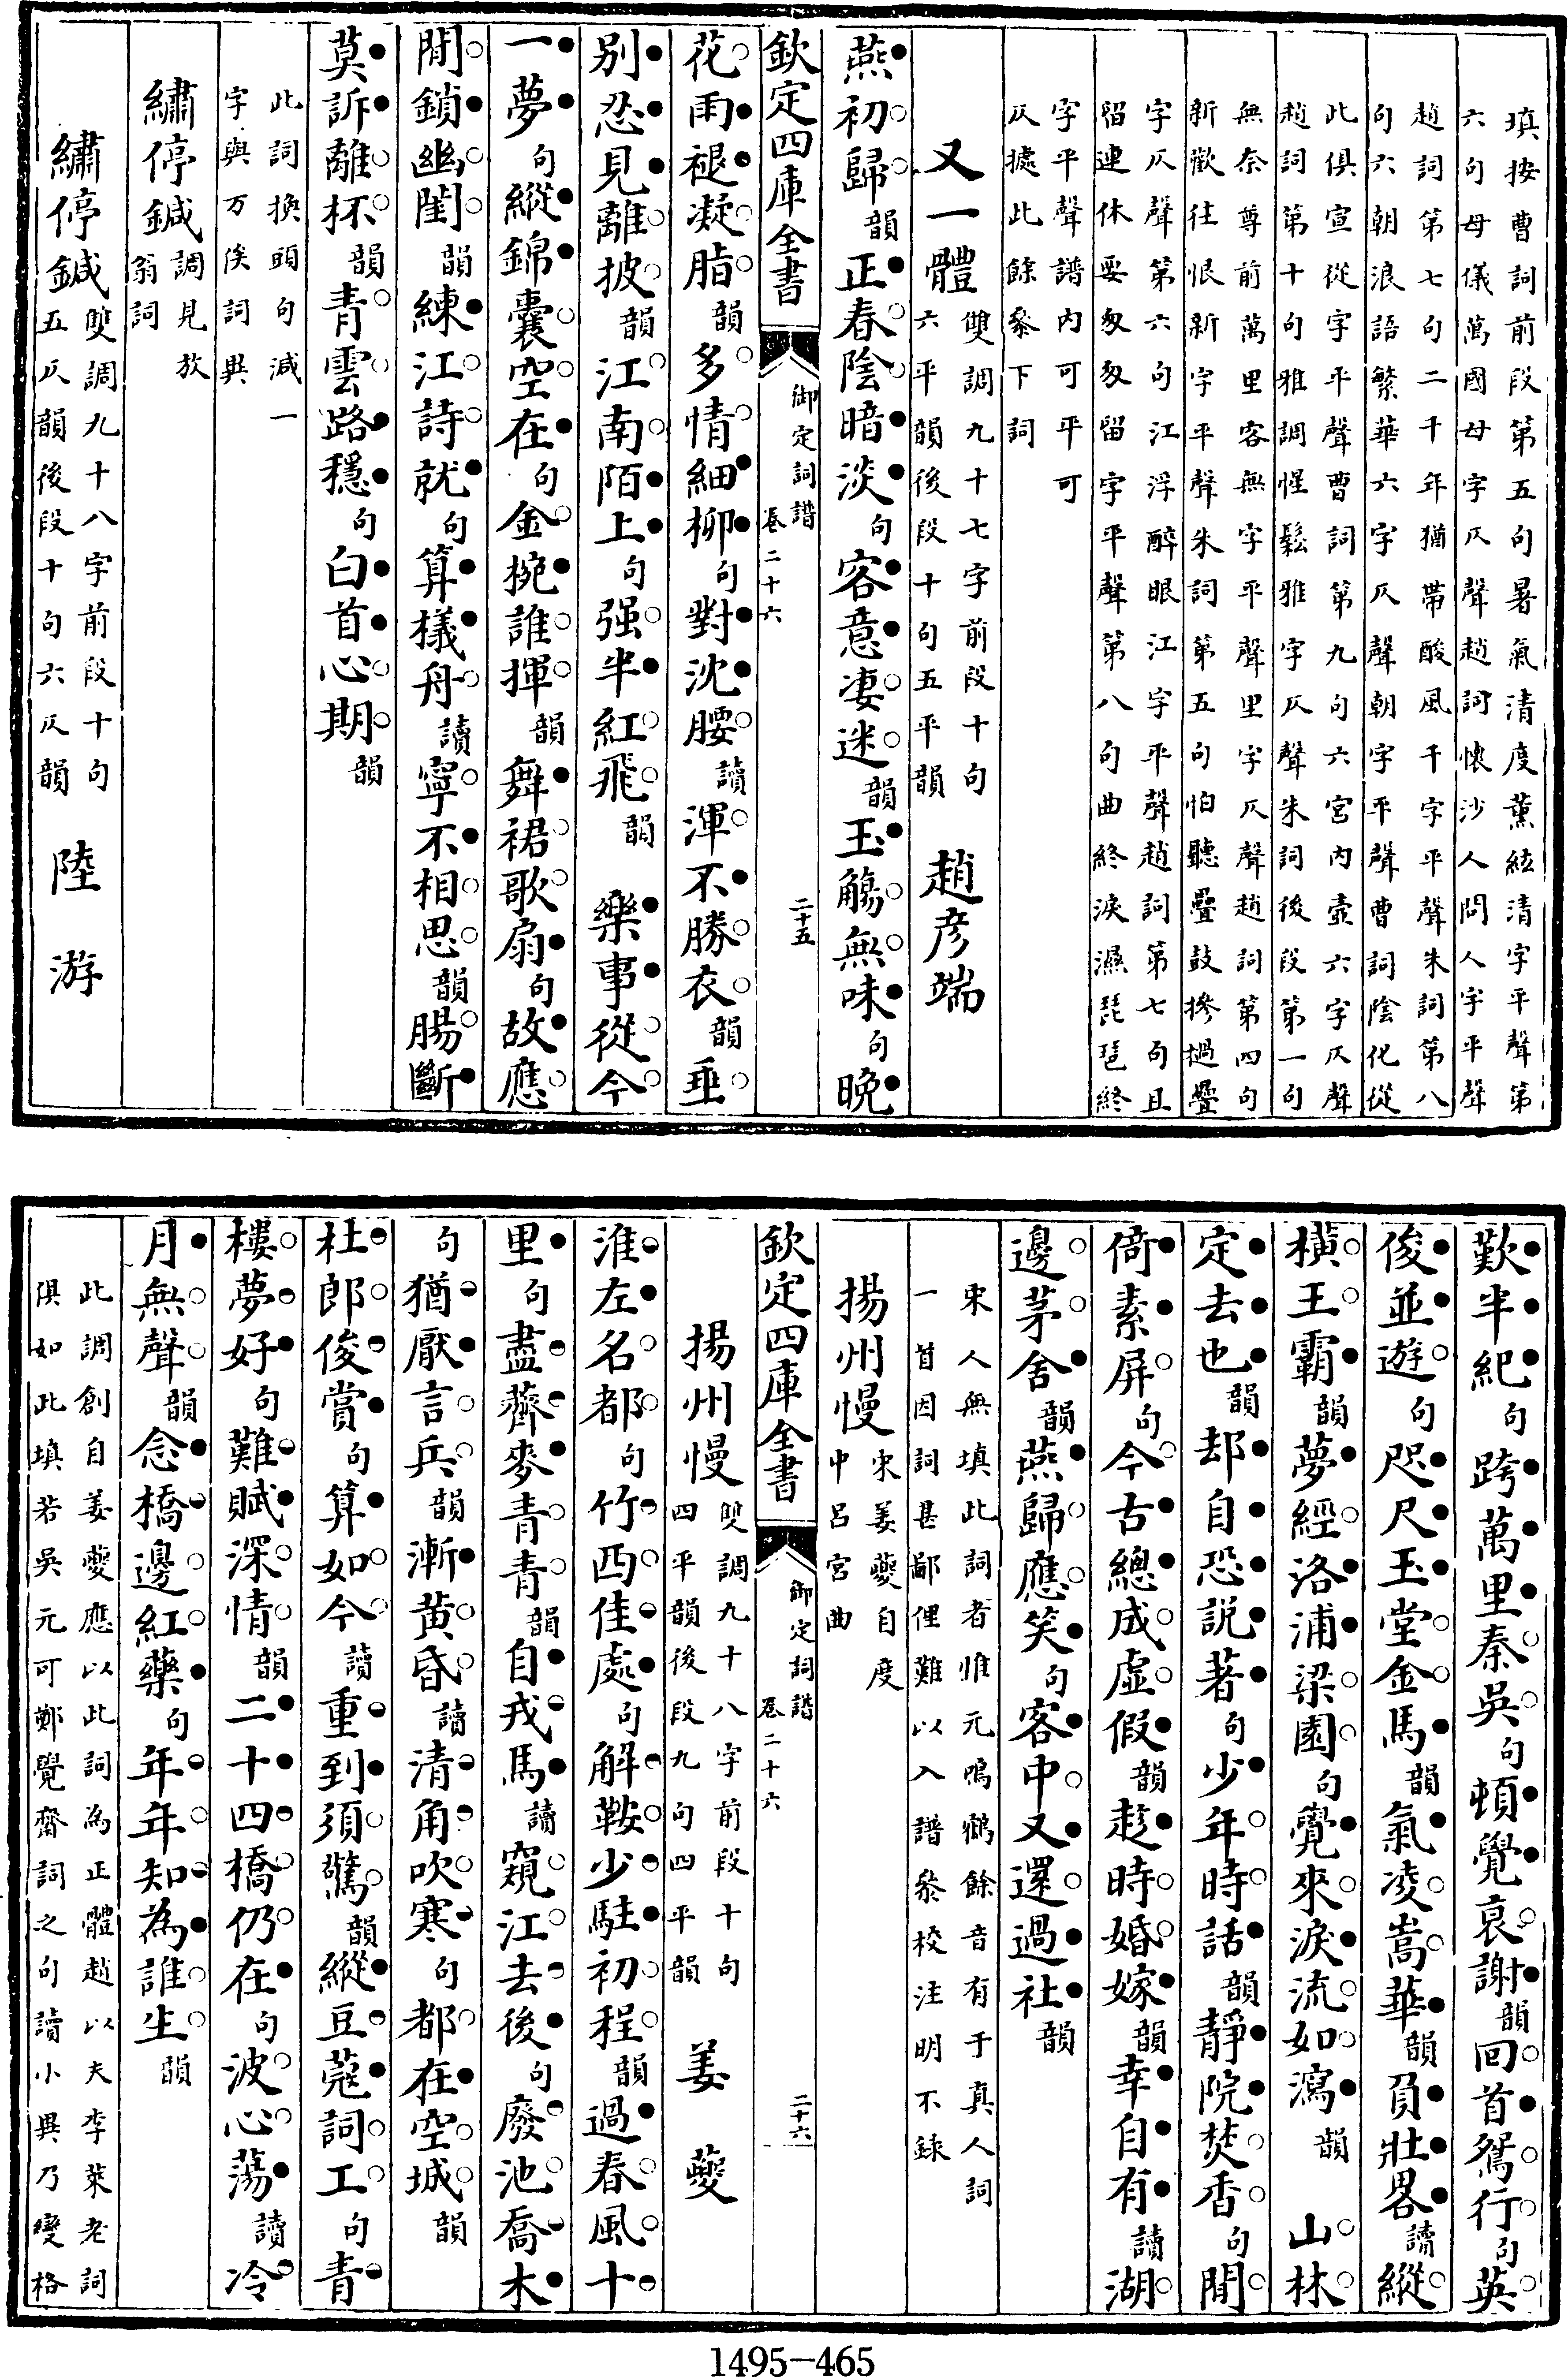 填按曹詞前段第五句暑氣清度薰絃清字平聲第
六句母儀萬國母字仄聲趙詞懷沙人問人字平聲
趙詞第七句二千年猶帶酸風千字平聲朱詞第八
句六朝浪語繁華六字仄聲朝字平聲曹詞陰化從
此俱宣從字平聲曹詞第九句六宮内壼六字仄聲
趙詞第十句雅調惺鬆雅字仄聲朱詞後段第一句
無奈尊前萬里客無字平聲里字仄聲趙詞第四句
新歡往恨新字平聲朱詞第五句怕聽疊鼓摻檛疊
字仄聲第六句江浮醉眼江字平聲趙詞第七句且
留連休要匆匆留字平聲第八句曲終淚濕琵琶終
字平聲譜内可平可
仄據此餘叅下詞
又一體 雙調九十七字前段十句
六平韻後段十句五平韻 趙彦端
燕初歸韻正春陰暗淡句客意凄迷韻玉觴無味句晩
欽定四庫全書 御定詞譜 卷二十六 二十五
花雨褪凝脂韻多情細柳句對沈腰讀渾不勝衣韻垂
别忍見離披韻江南陌上句强半紅飛韻 樂事從今
一夢句縱錦囊空在句金椀誰揮韻舞裙歌扇句故應
閒鎖幽閨韻練江詩就句算檥舟讀寧不相思韻腸斷
莫訴離杯韻青雲路穩句白首心期韻
此詞換頭句減一
字與万俟詞異
繡停鍼 調見放
翁詞
繡停鍼 雙調九十八字前段十句
五仄韻後段十句六仄韻 陸游
歎半紀句跨萬里秦吳句頓覺衰謝韻回首鴛行句英
俊並遊句咫尺玉堂金馬韻氣凌嵩華韻負壯畧讀縱
橫王霸韻夢經洛浦梁園句覺來淚流如瀉韻 山林
定去也韻却自恐説著句少年時話韻靜院焚香句閒
倚素屏句今古總成虚假韻趁時婚嫁韻幸自有讀湖
邊茅舍韻燕歸應笑句客中又還過社韻
宋人無填此詞者惟元鳴鶴餘音有于真人詞
一首因詞甚鄙俚難以入譜叅校注明不録
揚州慢 宋姜夔自度
中吕宫曲
欽定四庫全書 御定詞譜 卷二十六 二十六
揚州慢 雙調九十八字前段十句
四平韻後段九句四平韻 姜夔
淮左名都句竹西佳處句解鞍少駐初程韻過春風十
里句盡薺麥青青韻自戎馬讀窺江去後句廢池喬木
句猶厭言兵韻漸黄昏讀清角吹寒句都在空城韻
杜郎俊賞句算如今讀重到須驚韻縱豆蔻詞工句青
樓夢好句難賦深情韻二十四橋仍在句波心蕩讀冷
月無聲韻念橋邊紅藥句年年知為誰生韻
此調創自姜夔應以此詞為正體趙以夫李萊老詞
俱如此填若吳元可鄭覺齋詞之句讀小異乃變格
1495—465